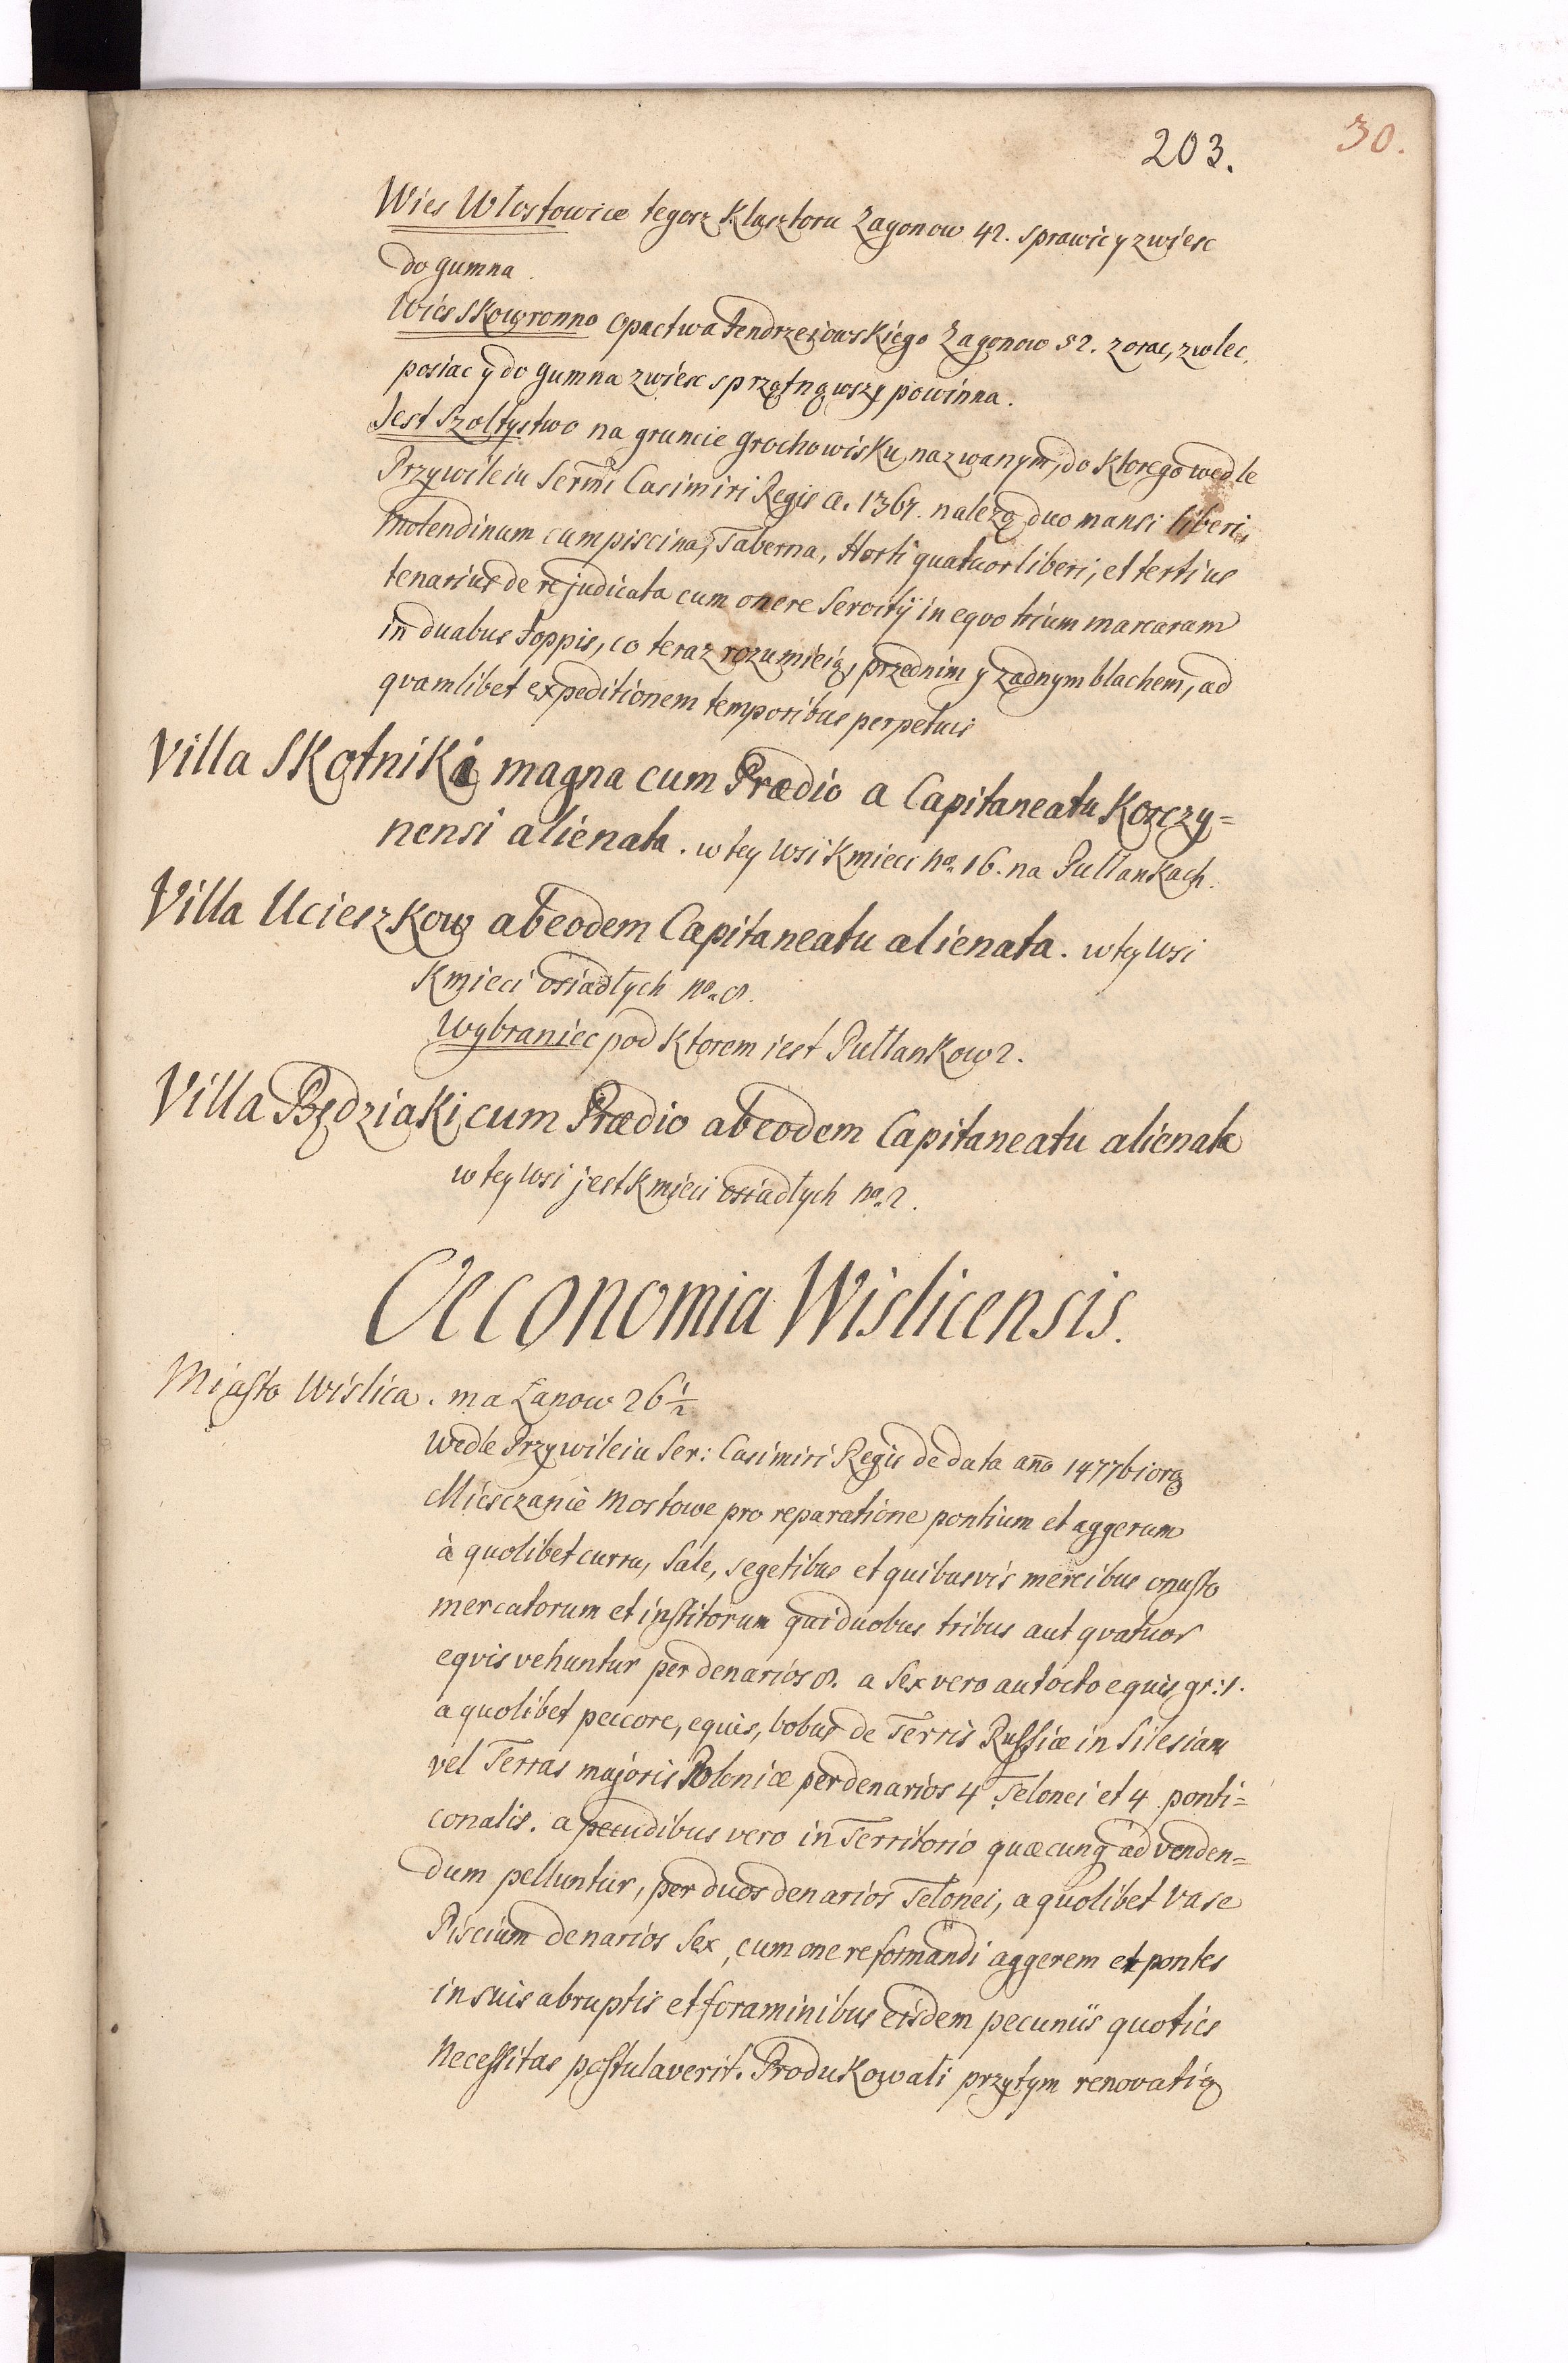 203.
30.
Wies Wlostowice tegosz Klasztoru Zagonow 42. sprawic y zwiesc
do gumna.
Wies Skowronno Opactwa Jendrzeiowskiego Zagonow 52. zorac, zwlec,
posiac y do gumna zwiesc sprzątnąwszy powinna.
Jest Szoltystwo na gruncie Grochowisku nazwanym, do ktorego wedle
Przywileiu Sermi Casimiri Regis a. 1367. należą duo mansi liberi,
molendinum cum piscina, Taberna, Horti quatuor liberi, et tertius
tenarius de re judicata cum onere Servitÿ in eqvo trium marcarum
in duabus Joppis, co teraz rozumieią, przednim y zadnym blachem, ad
qvamlibet expeditionem temporibus perpetuis
Villa Skotniki magna cum Prædio a Capitaneatu Korczy=
nensi alienata. w tey wsi Kmieci No. 16. na Pullankach.
Villa Ucieszkow ab eodem Capitaneatu alienata. w tey wsi
Kmieci osiadłych No. 8.
Wybraniec pod ktorem iest Pullankow 2.
Villa Będziaki cum Prædio ab eodem Capitaneatu alienata
w tey wsi jest Kmieci osiadłych No. 2.
Oeconomia Wislicensis.
Miasto Wislica. ma Łanow 26 1/2
Wedle Przywileiu Ser: Casimiri Regis de data año 1477 biorą
Miesczanie Mostowe pro reparatione pontium et aggerum
à quolibet curru, Sale, segetibus et quibusvis mercibus onusto
mercatorum et institorum qui duobus tribus aut qvatuor
eqvis vehuntur per denarios 8. a Sex vero aut octo equis gr: 1.
a quolibet peccore, equis, bobus de Terris Russiæ in Silesiam
vel Terras majoris Poloniæ per denarios 4 Telonei et 4 ponti=
conalis. a pecudibus vero in Territorio quæcunq ad venden=
dum pelluntur, per duos denarios Telonei, a quolibet Vase
Piscium denarios Sex, cum one reformandi aggerem et pontes
in suis abruptis et foraminibus eisdem pecuniis quoties
Necessitas postulaverit. Produkowali przytym renovatią